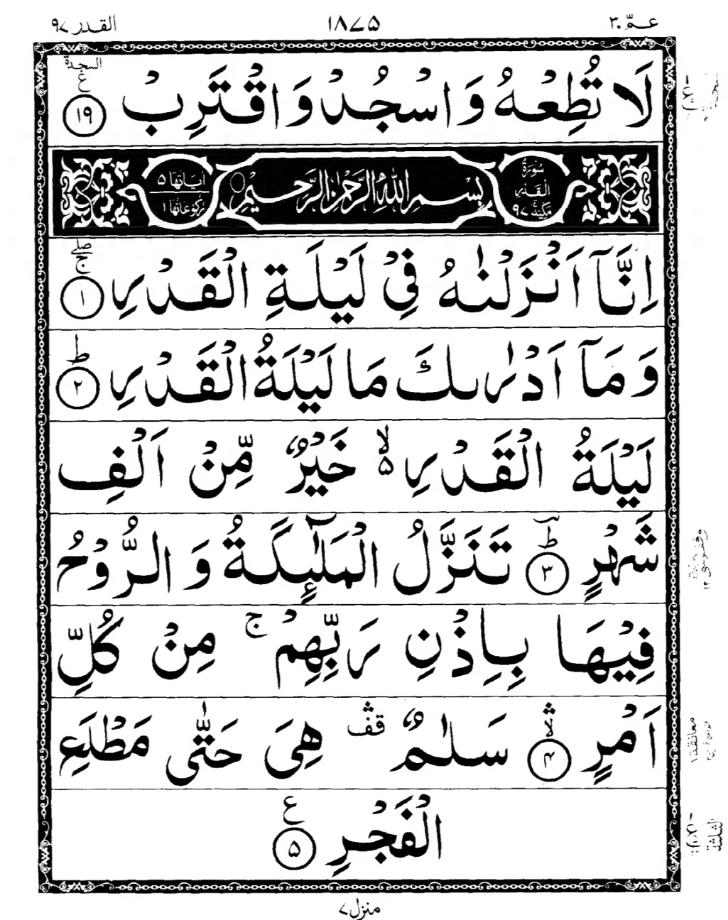 عـمّ ۳۰ ۱۸۷۵ القدر ۹۷
السجدة
لَا تُطِعْهُ وَاسْجُدْ وَاقْتَرِبْ ۱۹ ع
سُوْرَةُ الْقَدْرِ مَكِّيَّةٌ ۹۷ بِسْمِ اللّٰهِ الرَّحْمٰنِ الرَّحِيْمِ اٰيَاتُهَا ۵ رُكُوْعَاتُهَا ۱
اِنَّاۤ اَنْزَلْنٰهُ فِيْ لَيْلَةِ الْقَدْرِ ۱ صلے ج
وَمَاۤ اَدْرٰىكَ مَا لَيْلَةُ الْقَدْرِ ۲ ط
لَيْلَةُ الْقَدْرِ ۵ لا خَيْرٌ مِّنْ اَلْفِ
شَهْرٍ ۳ ط تَنَزَّلُ الْمَلٰٓئِكَةُ وَالرُّوْحُ
فِيْهَا بِاِذْنِ رَبِّهِمْ ج مِنْ كُلِّ
اَمْرٍ ۴ سَلٰمٌ قف هِيَ حَتّٰى مَطْلَعِ
الْفَجْرِ ۵ ع
معانقة ۱
منزل ۷